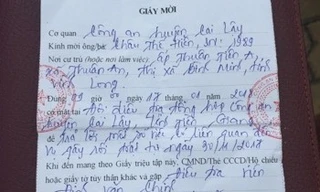 GIẤY MỜI
Cơ quan Công an huyện Cai Lậy
Kính mời ông/bà: Châu Thị Hiền, SN: 1989
Nơi cư trú (hoặc nơi làm việc) ấp Thuận Tiến A,
xã Thuận An, Thị xã Bình Minh, tỉnh
Vĩnh Long.
Đúng 09 giờ 00 ngày 17 tháng 01 năm
có mặt tại Đội điều tra tổng hợp Công an
huyện Cai Lậy, tỉnh Tiền Giang
để trả lời một số liên quan đến
vụ gây rối trật tự ngày 30/11/2017
Khi đến mang theo Giấy triệu tập này, CMND/Thẻ CCCD/Hộ chiếu
hoặc giấy tờ tùy thân khác và gặp Điều tra viên